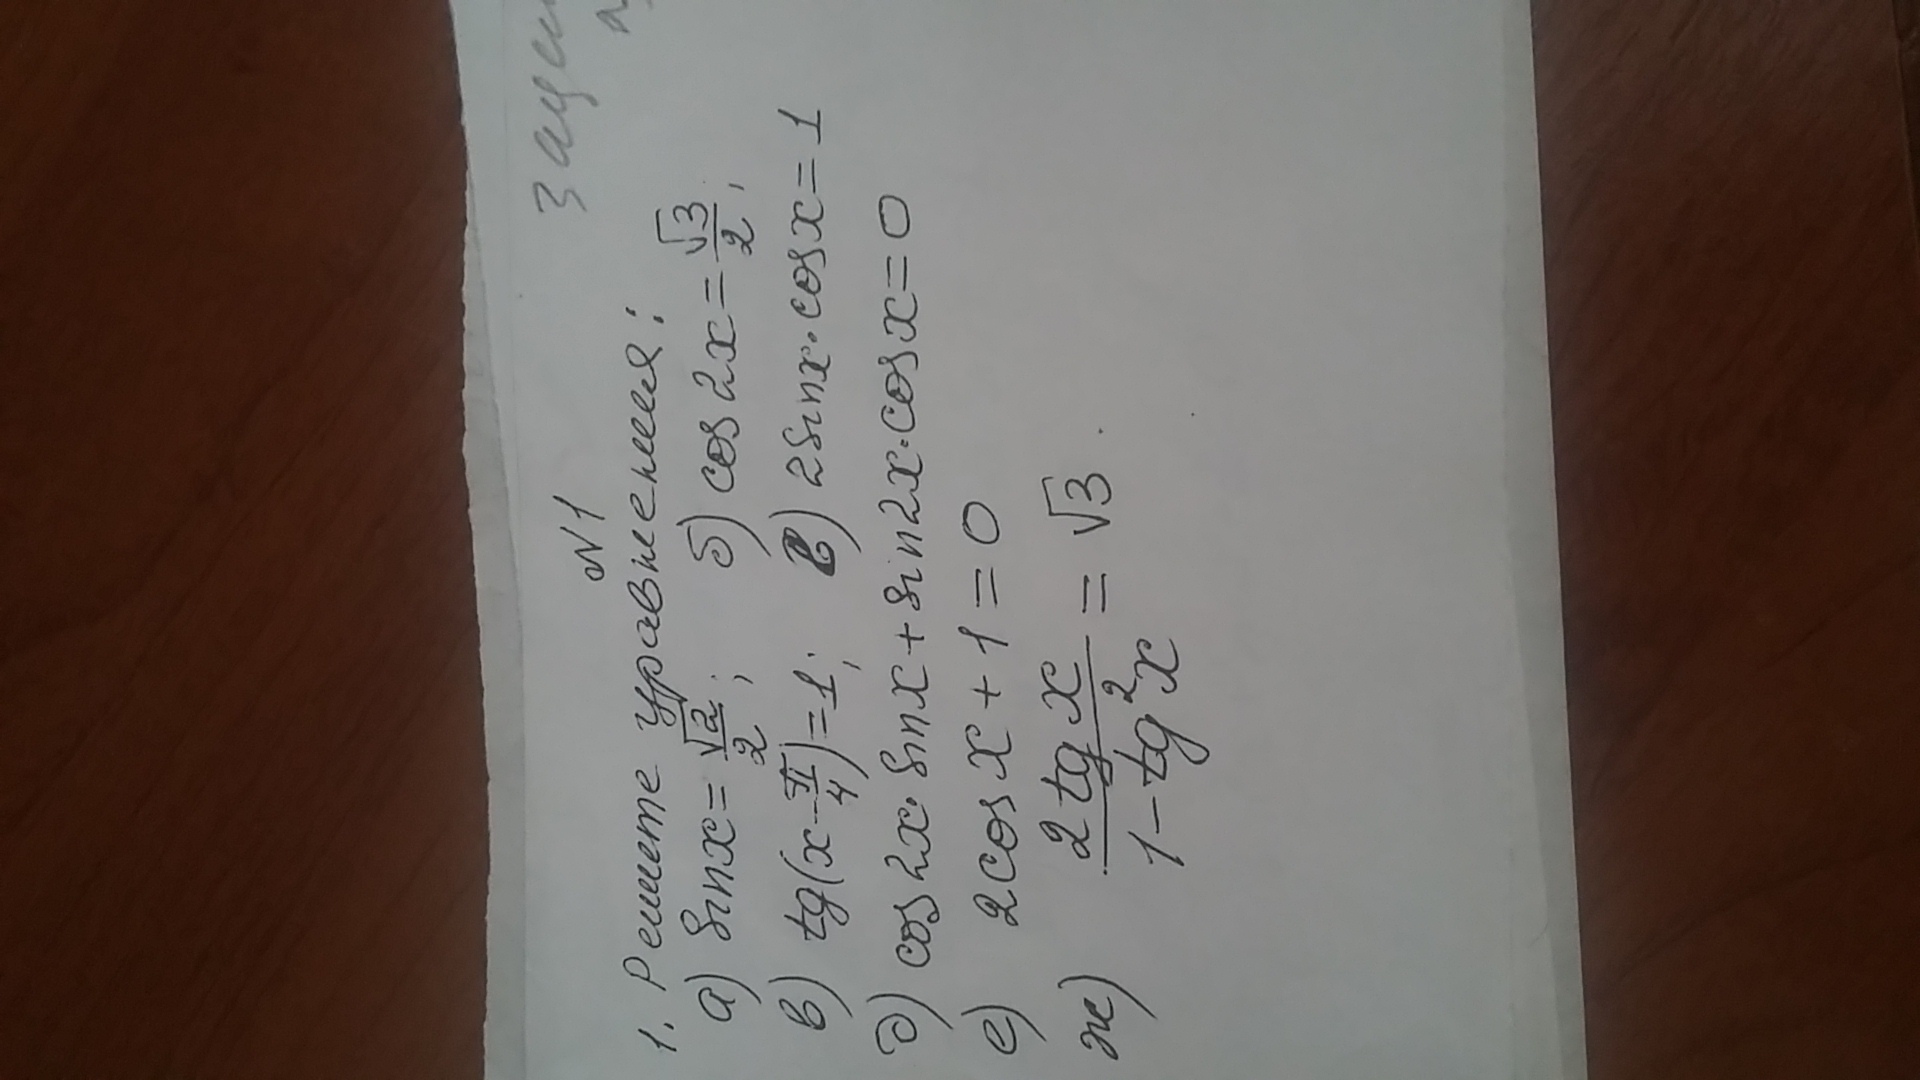 N1
1. Решите уравнения:
а) sinx = √2/2; б) cos2x = √3/2;
в) tg(x - π/4) = 1; г) 2sinx·cosx = 1
д) cos2x·sinx + sin2x·cosx = 0
е) 2cosx + 1 = 0
ж) 2tgx/(1 - tg²x) = √3